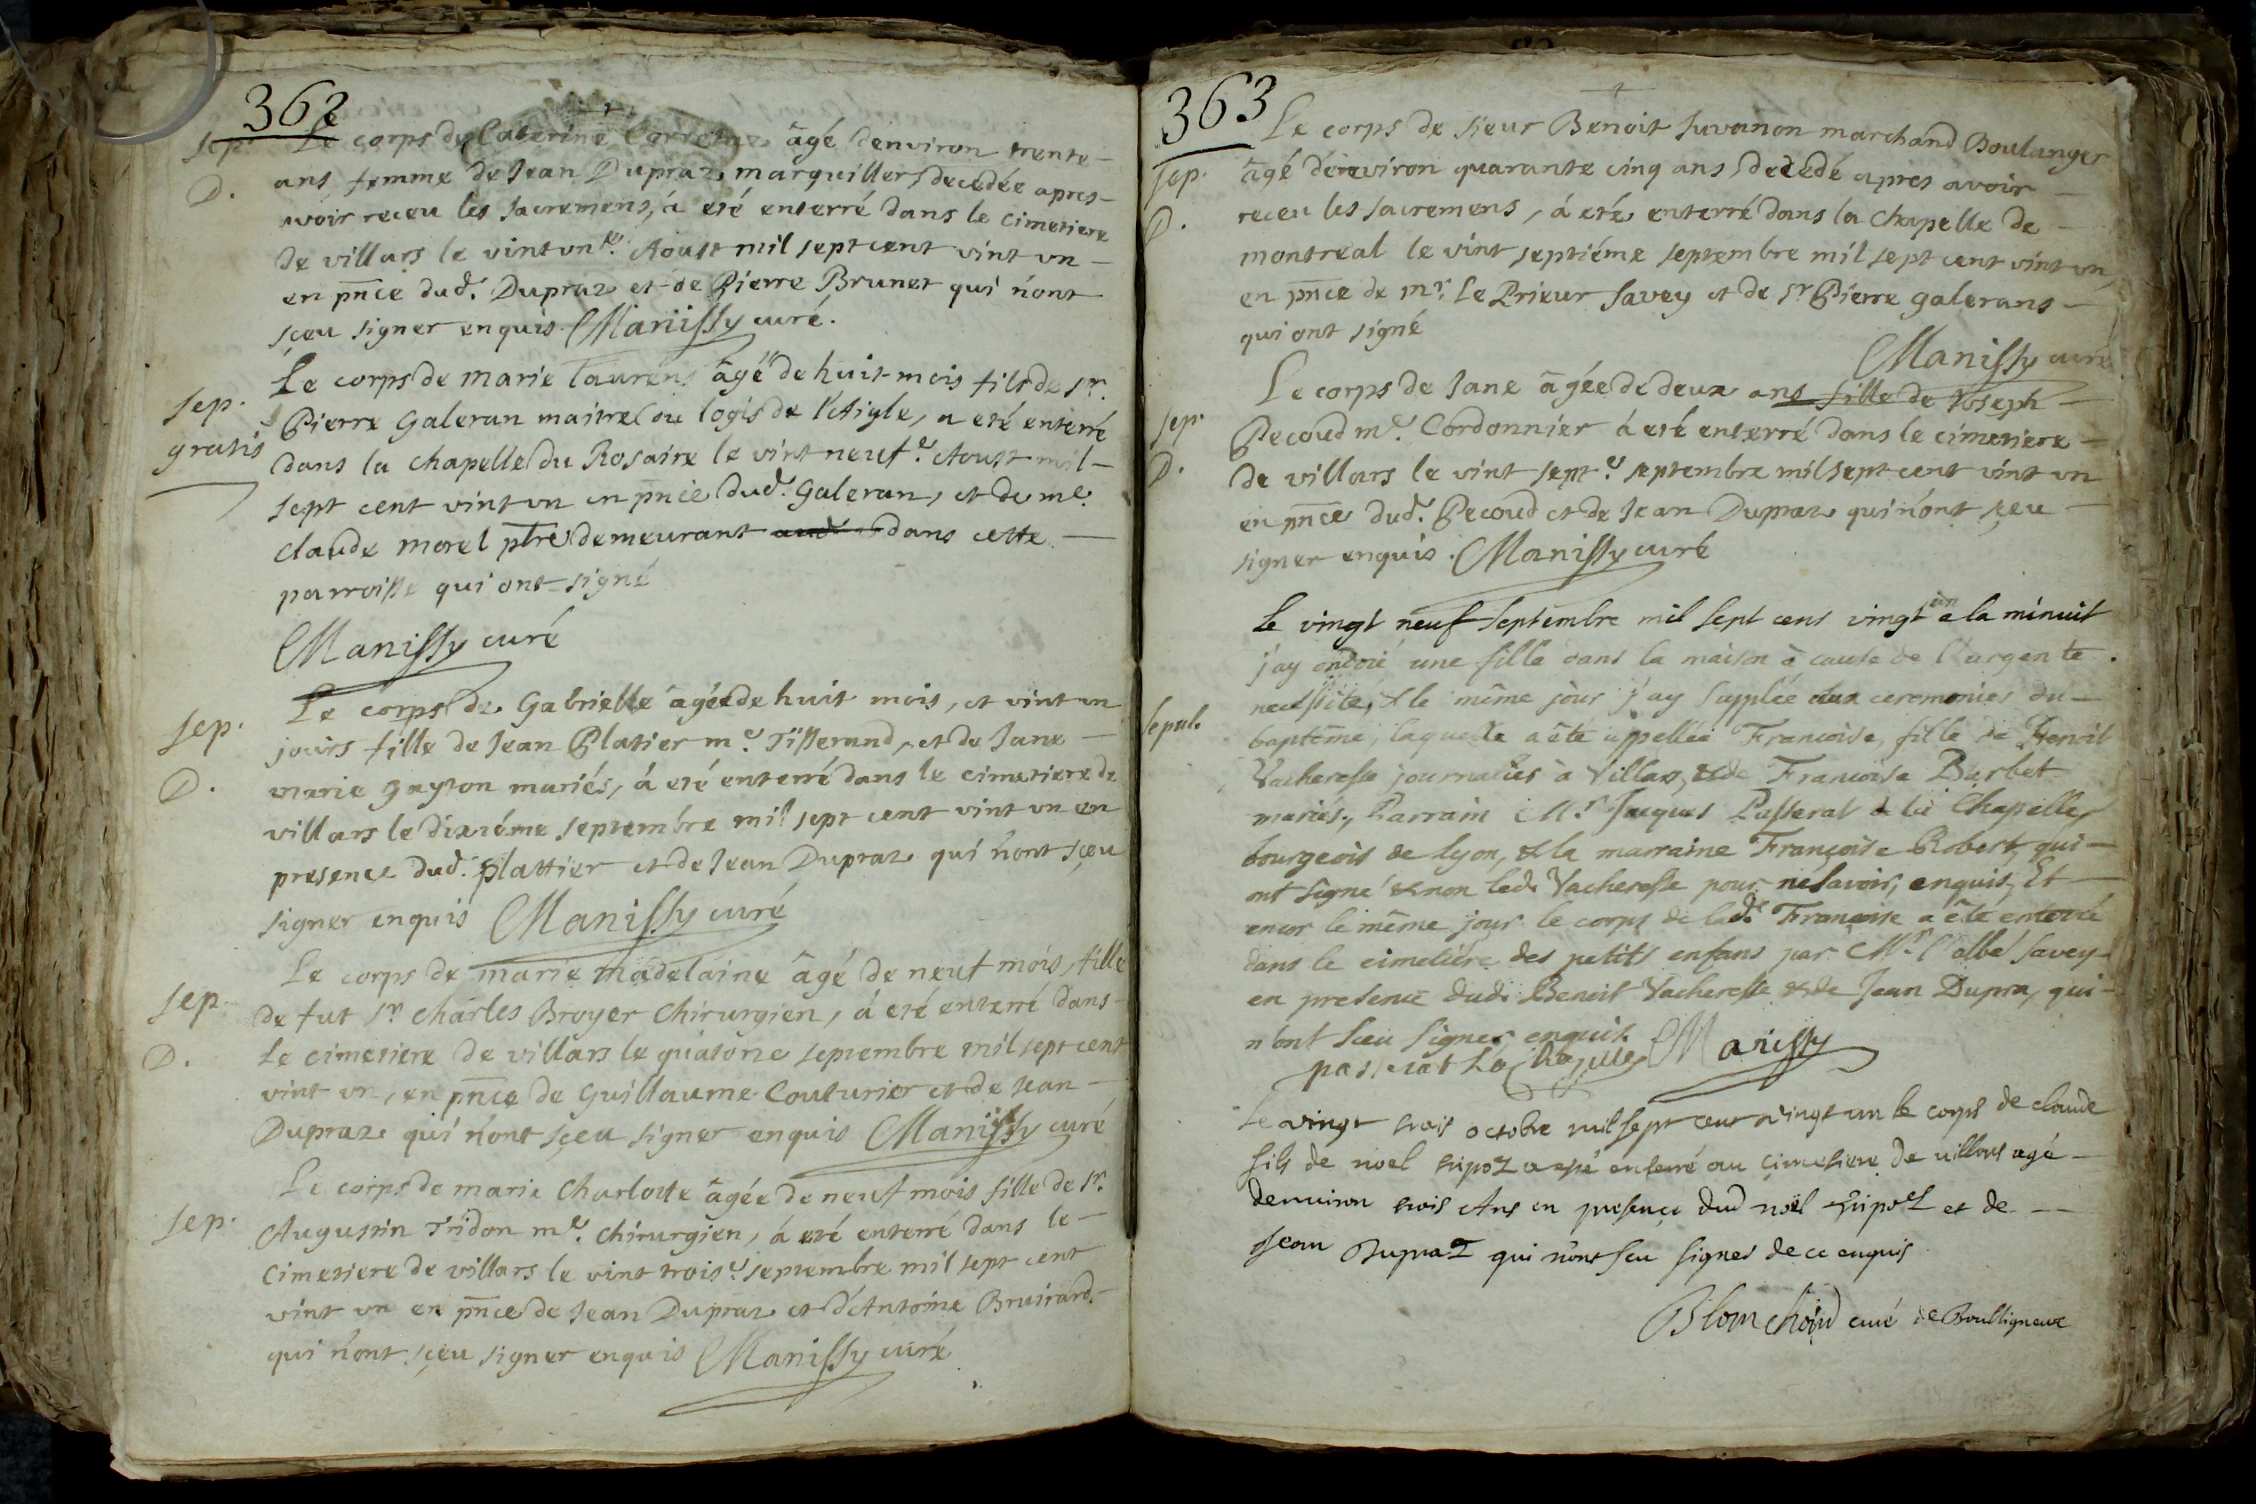 362
sep.
D.
Le corps de Caterine âgé denviron trente-
ans femme de Jean Dupraz marguillier decedée apres-
avoir receu les sacremens, á eté enterré dans le Cimetiere
de villars le vint vn.e Aoust mil sept cent vint vn-
en pnce dud. Dupraz et de Pierre Brunet qui n'ont
sçeu signer enquis. Manissy curé.
sep.
gratis
Le corps de marie Laurens âgé de huit mois fils de sr.
Pierre Galeran maitre du logis de l'Aigle, a eté enterré
dans la chapelle du Rosaire le vint neuf.e Aoust mil-
sept cent vint vn en pnce dud. Galeran, et de me.
Claude morel ptre demeurant dans cette-
parroisse qui ont signé
Manissy curé
sep.
D.
Le corps de Gabrielle âgée de huit mois, et vint vn
jours fille de Jean Platier me. Tisserand, et de Jane-
marie gayton mariés, á eté enterré dans le cimetiere de
villars le dixiéme septembre mil sept cent vint vn en
presence dud. plattier et de Jean Dupraz qui n'ont sçeu
signer enquis Manissy curé
sep.
D.
Le corps de marie madelaine âgé de neuf mois, fille
de fut sr charles Broyer Chirurgien, á eté enterré dans-
le cimetiere de villars le quatorze septembre mil sept cent
vint vn, en pnce de Guillaume Couturier et de Jean-
Dupraz qui n'ont sçeu signer enquis Manissy curé
sep.
Le corps de marie Charlotte âgée de neuf mois fille de sr.
Augustin Tridon me. chirurgien, á eté enterré dans le-
Cimetiere de villars le vint trois.e septembre mil sept cent
vint vn en pnce de Jean Dupraz et d'Antoine Bruirard-
qui n'ont sçeu signer enquis Manissy curé
363
sep.
D.
Le corps de sieur Benoit Juvanon marchand Boulanger
âgé dénviron quarante cinq ans decedé apres avoir-
receu les sacremens, á eté enterré dans la chapelle de-
montreal le vint septiéme septembre mil sept cent vint vn
en pnce de mr. Le Prieur Savey et de sr Pierre galerans-
qui ont signé
Manissy curé
sep.
D.
Le corps de Jane âgée de deux ans fille de Joseph-
Pecoud me. Cordonnier á eté enterré dans le cimetiere-
de villars le vint sept.e septembre mil sept cent vint vn
en pnce dud. Pecoud et de Jean Dupraz qui n'ont sçeu-
signer enquis. Manissy curé
sepul.
Le vingt neuf septembre mil sept cens vingt un a la minuit
j'ay ondoié une fille dans la maison à cause de l'urgente
necessité, & le même jour j'ay supplée aux ceremonies du-
baptême, laquelle a été appellée Francoise, fille de Benoit
Vacheresse journalier à Villars, & de Francoise Burbet
mariés, Parrain Mr. Jacques Passerat de la Chapelle,
bourgeois de lyon, & la marraine Françoise Robert, qui-
ont signé & non led. Vacheresse pour ne savoir, enquis, Et-
encor le même jour le corps de lade. Francoise a été enterré
dans le cimetiére des petits enfans par Mr. l'abbé Savey-
en presence dud. Benoit Vacheresse & de Jean Dupra, qui-
n'ont sceu signer enquis.
passerat La Chapelle Manissy
Le vingt trois octobre mil sept cent vingt un le corps de claude
fils de noel tripoz a esté enterré au cimetiere de villars agé-
denuiron trois Ans en presence dud noel tripoz et de--
Jean DupraZ qui n'ont seu signer de ce enquis
Blanchard curé de Boulligneux